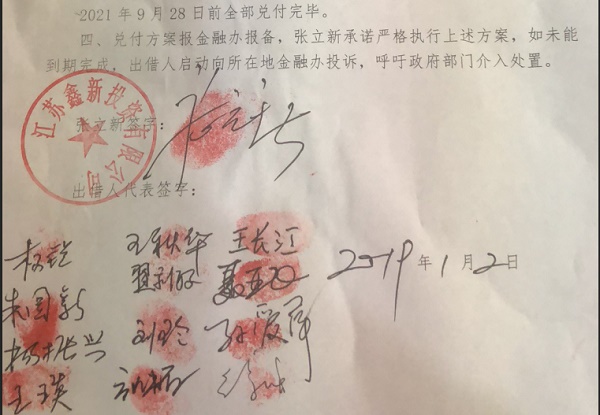 2021年9月28日前全部兑付完毕。
四、兑付方案报金融办报备，张立新承诺严格执行上述方案，如未能
到期完成，出借人启动向所在地金融办投诉，呼吁政府部门介入处置。
江苏鑫新投资有限公司
张立新签字：
出借人代表签字：
王秋华 王长江
2019年1月2日
朱国新
刘玲 孙爱萍
杨振兴
王瑛